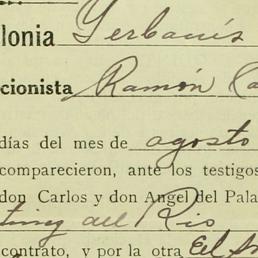 lonia Yerbanís
cionista Ramón Ca
días del mes de agosto
comparecieron, ante los testigos
don Carlos y don Angel del Pala
tinez del Rio
contrato, y por la otra El